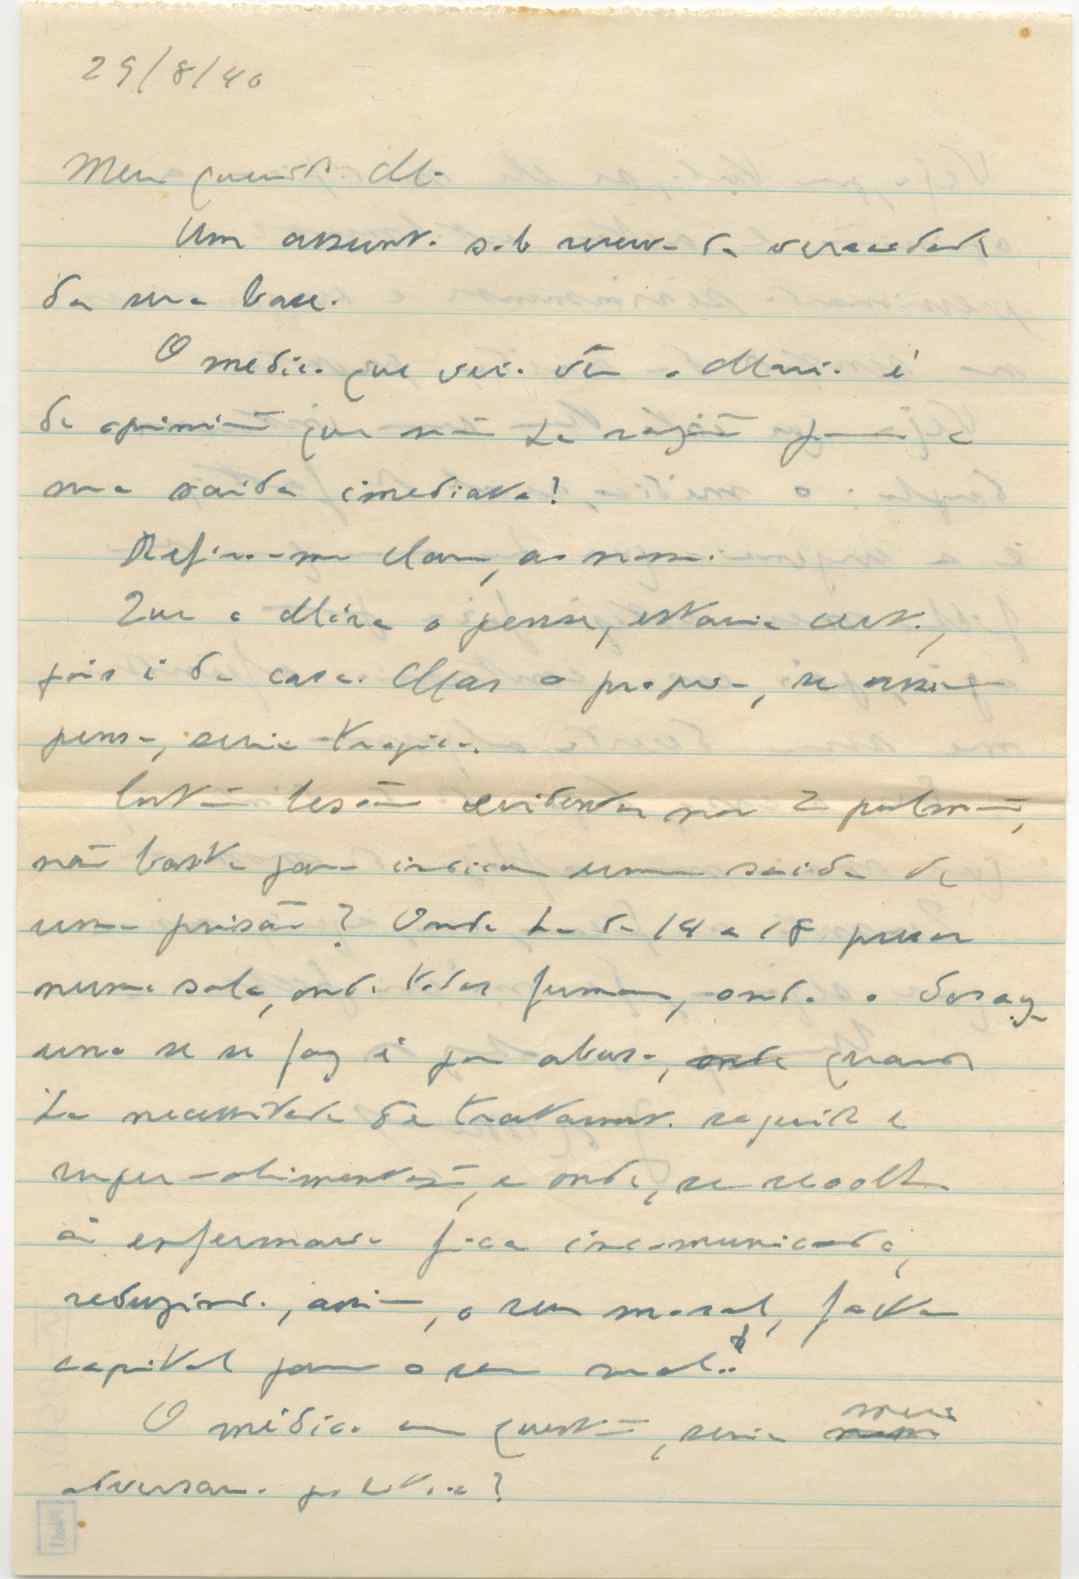 29/8/40
Meu querido M.
Um assunto sob reserva da veracidade
da sua base.
O medico que veio vêr o Mario é
de opinião que não ha razão para a
sua saida imediata?
Refiro-me claro, ao nosso.
Que a o pense, estaria certo,
pois é da casa. Mas o proprio, se assim
pensa, seria tragico.
Então lesão evidente nos 2 pulmões,
não basta para indicar uma saida de
uma prisão? Onde ha de 14 a 18 presos
numa sala, onde todos fumam, onde o
uns se se faz é por abuso, quando
ha necessidade de tratamento seguido e
super-alimentação, e onde, se recolhe
á enfermaria fica incomunicado,
reduzindo, assim, o seu moral, factor
capital para o seu mal.
O médico em questão, seria meu
adversario politico?